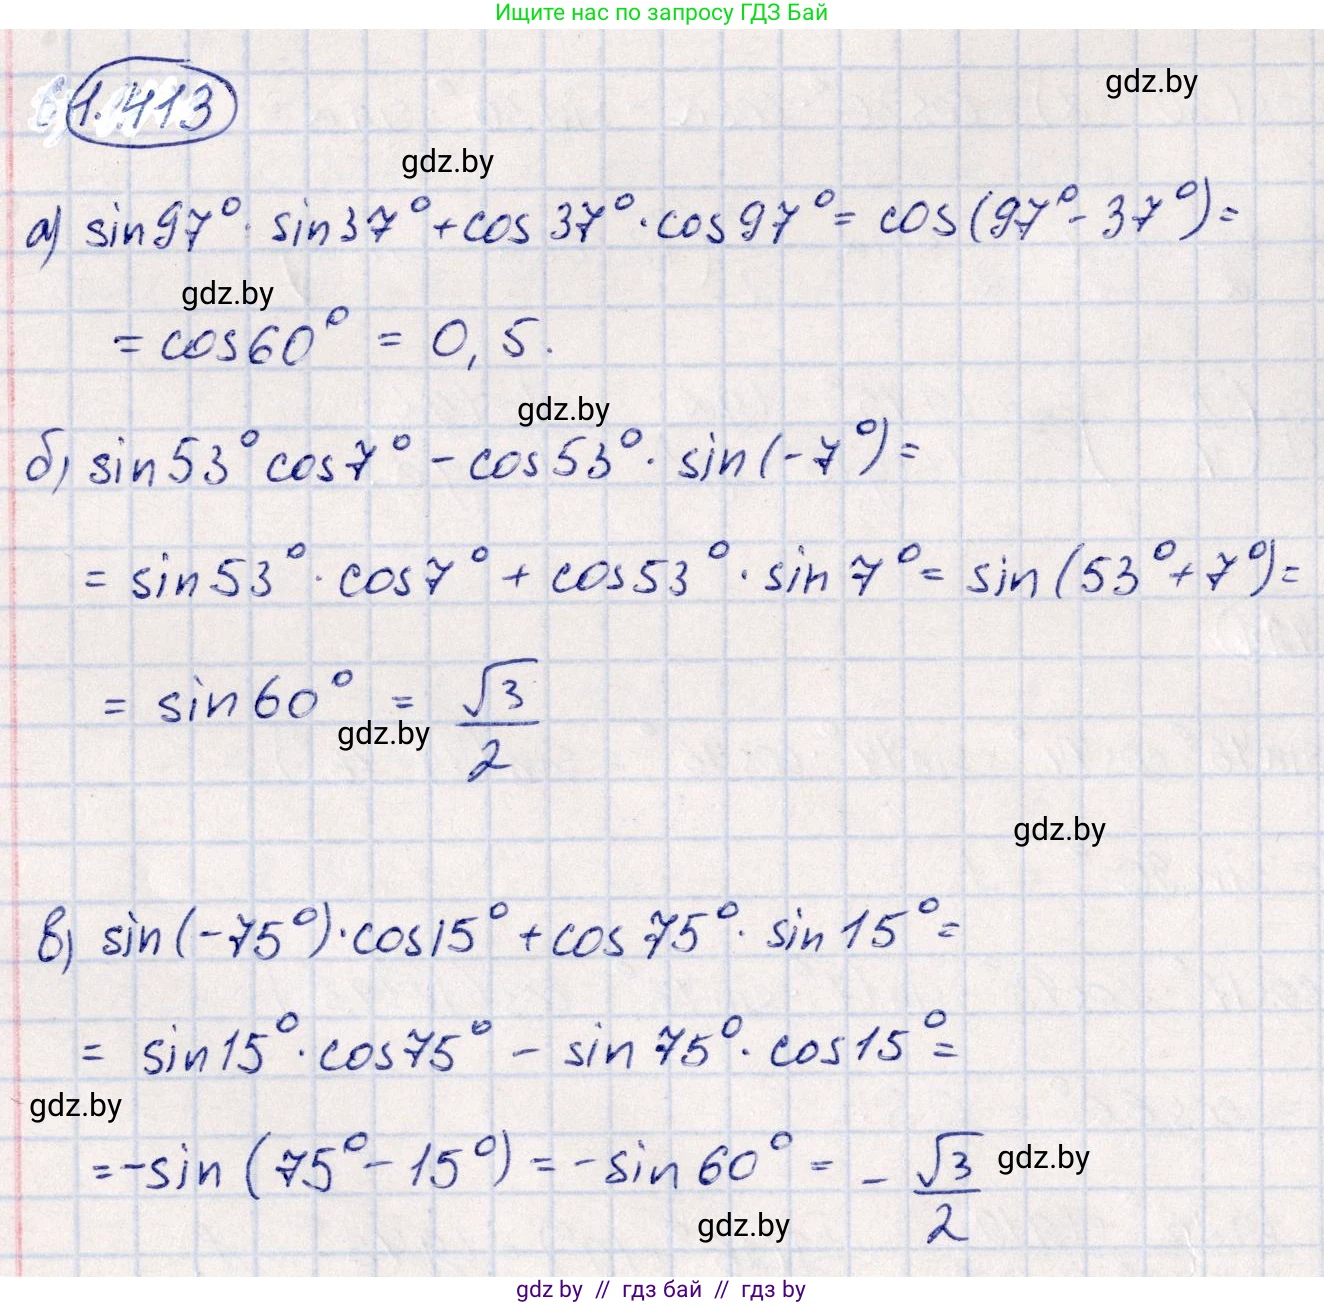 Ищите нас по запросу ГДЗ Бай
1.413
gdz.by
gdz.by
а) sin97°· sin37°+cos37°·cos97°= cos(97°-37°)=
gdz.by
= cos60° = 0,5.
gdz.by
б) sin53°cos7° - cos53°· sin(-7°)=
= sin53°· cos7° + cos53°· sin7°= sin(53°+7°)=
= sin60° = √3/2
gdz.by
gdz.by
в) sin(-75°)·cos15°+cos75°· sin15°=
= sin15°· cos75° - sin75°· cos15°=
gdz.by
=-sin(75°-15°)=-sin60°= -√3/2
gdz.by
gdz.by
gdz by // гдз бай // гдз by